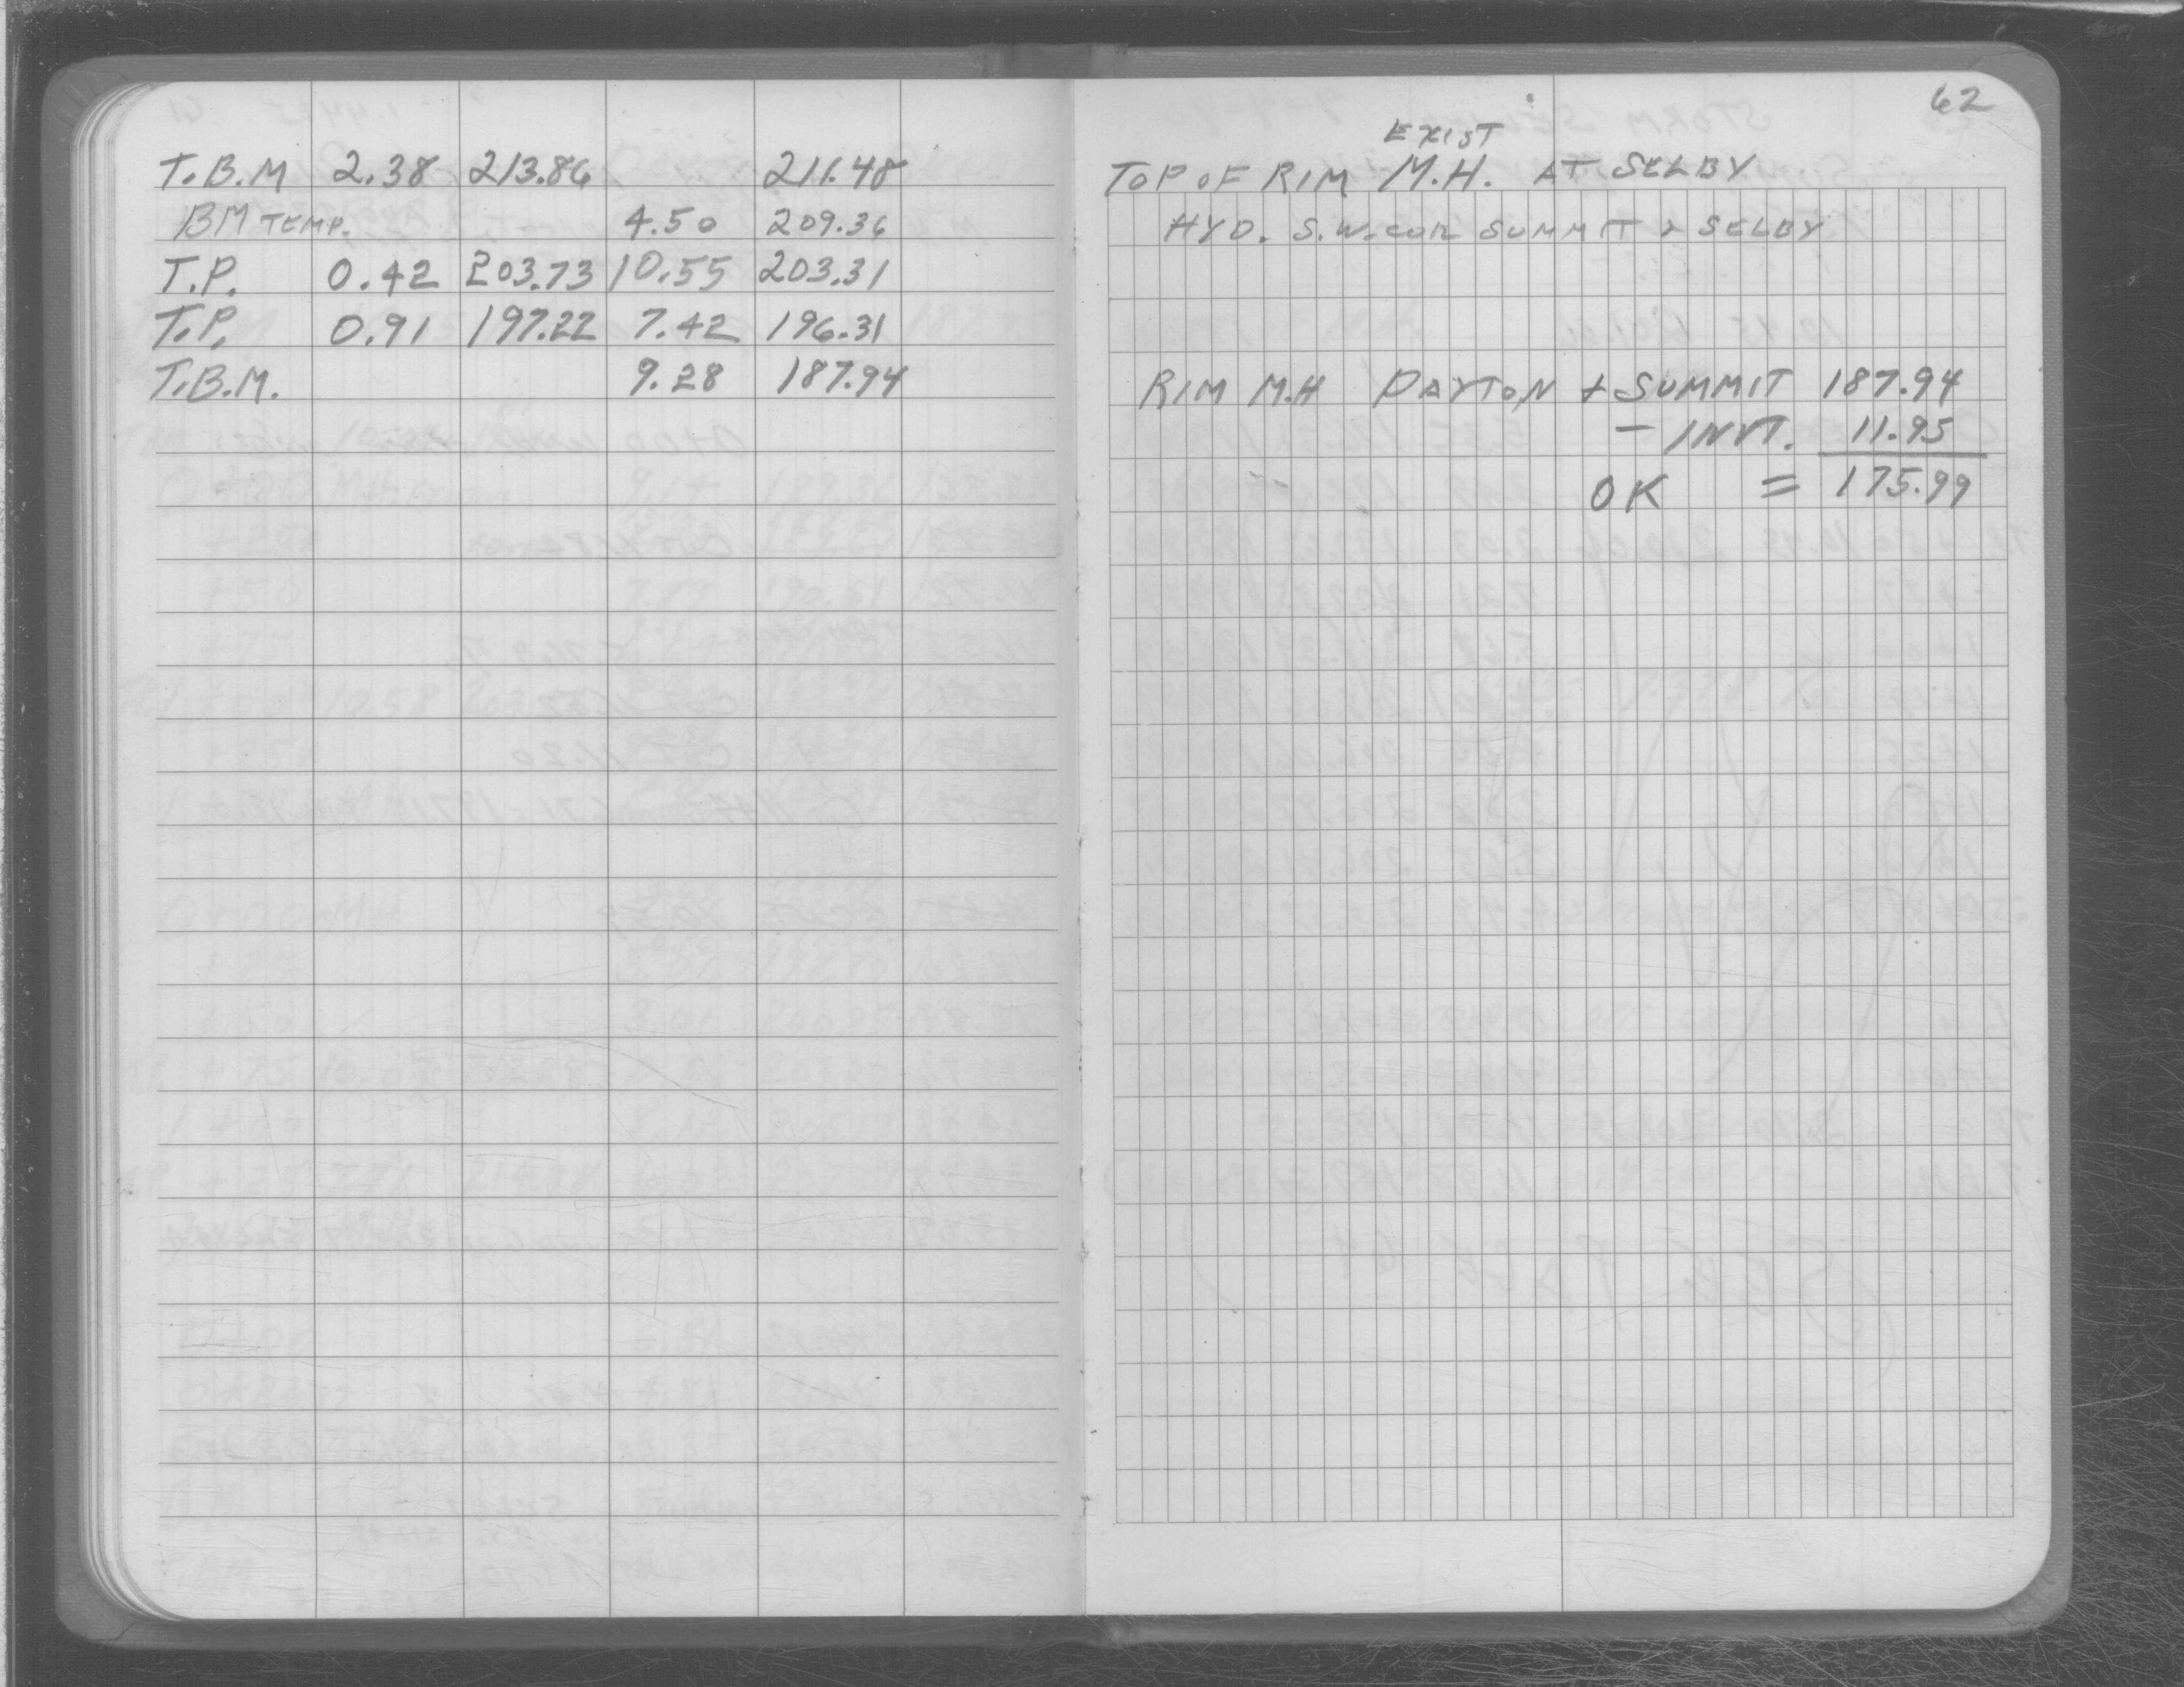 62
T.B.M 2.38 213.86 211.48
BM TEMP. 4.50 209.36
T.P. 0.42 203.73 10.55 203.31
T.P. 0.91 197.22 7.42 196.31
T.B.M. 9.28 187.94
EXIST
TOP OF RIM M.H. AT SELBY
HYD. S.W. COR SUMMIT & SELBY
RIM M.H DAYTON + SUMMIT 187.94
- INVT. 11.95
OK = 175.99